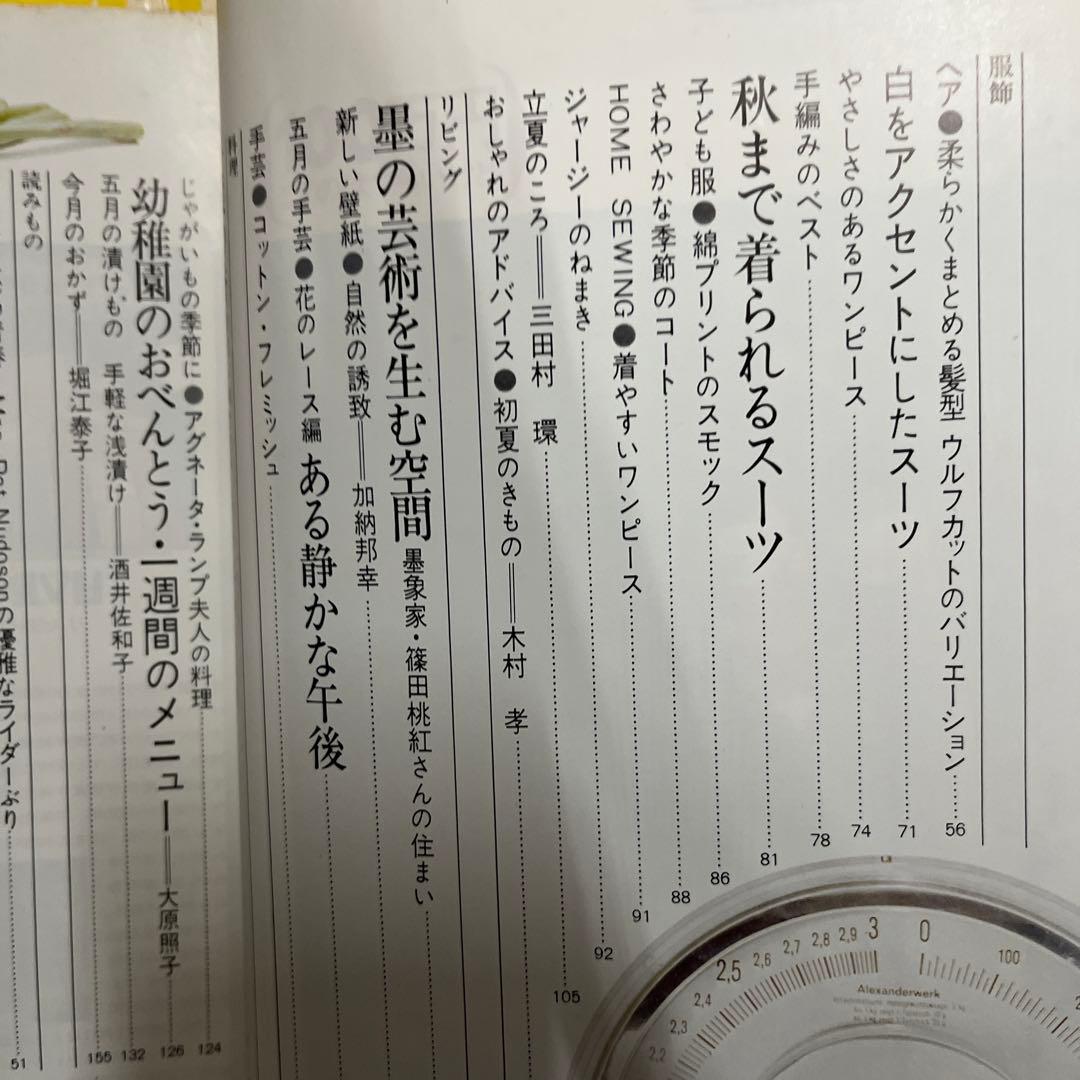 服飾
ヘア●柔らかくまとめる髪型 ウルフカットのバリエーション……56
白をアクセントにしたスーツ……71
やさしさのあるワンピース……74
手編みのベスト……78
秋まで着られるスーツ……81
子ども服●綿プリントのスモック……86
さわやかな季節のコート……88
HOME SEWING●着やすいワンピース……91
ジャージーのねまき……92
立夏のころ＝三田村 環……105
おしゃれのアドバイス●初夏のきもの＝木村 孝……
リビング
墨の芸術を生む空間 墨象家・篠田桃紅さんの住まい……
新しい壁紙●自然の誘致＝加納邦幸……
五月の手芸●花のレース編 ある静かな午後……
手芸●コットン・フレミッシュ……
料理
じゃがいもの季節に●アグネータ・ランプ夫人の料理……124
幼稚園のおべんとう・一週間のメニュー＝大原照子……126
五月の漬けもの 手軽な浅漬け＝酒井佐和子……132
今月のおかず＝堀江泰子……155
読みもの
の優雅なライダーぶり……51
2,2
2,3
2,4
2,5
2,6
2,7
2,8
2,9
3
0
100
Alexanderwerk